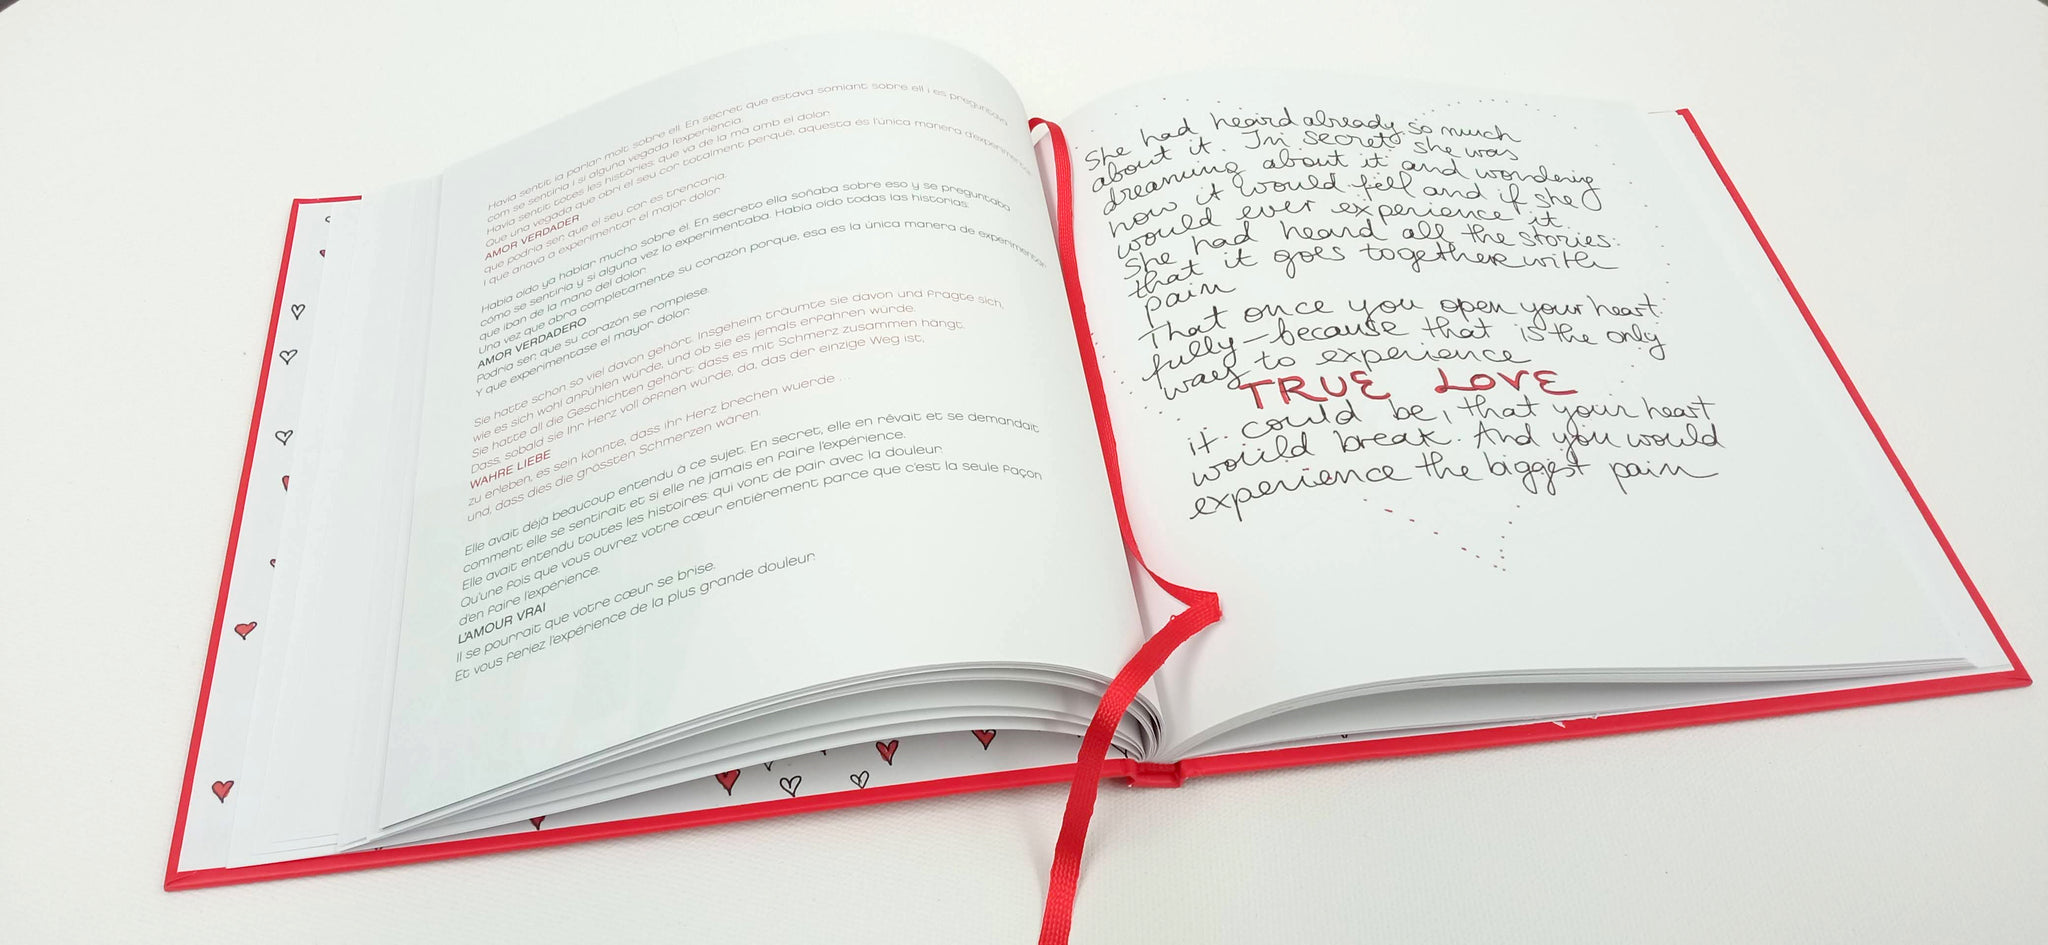 Havia sentit ja parlar molt sobre ell. En secret que estava somiant sobre ell i es preguntava
com se sentiria i si alguna vegada l'experiència.
Havia sentit totes les històries: que va de la mà amb el dolor.
Que una vegada que obri el seu cor totalment perquè, aquesta és l'única manera
AMOR VERDADER
que podria ser que el seu cor es trencaria.
i que anava a experimentar el major dolor.
Había oído ya hablar mucho sobre él. En secreto ella soñaba sobre eso y se preguntaba
cómo se sentiría y si alguna vez lo experimentaba. Había oído todas las historias:
que iban de la mano del dolor.
Una vez que abra completamente su corazón porque, esa es la única manera de experimentar
AMOR VERDADERO
Podría ser, que su corazón se rompiese.
Y que experimentase el mayor dolor.
Sie hatte schon so viel davon gehört. Insgeheim träumte sie davon und fragte sich,
wie es sich wohl anfühlen würde, und ob sie es jemals erfahren würde.
Sie hatte all die Geschichten gehört: dass es mit Schmerz zusammen hängt.
Dass, sobald sie Ihr Herz voll öffnen würde, da, das der einzige Weg ist,
WAHRE LIEBE
zu erleben, es sein könnte, dass ihr Herz brechen wuerde ...
und, dass dies die grössten Schmerzen wären.
Elle avait déjà beaucoup entendu à ce sujet. En secret, elle en rêvait et se demandait
comment elle se sentirait et si elle ne jamais en faire l'expérience.
Elle avait entendu toutes les histoires: qui vont de pair avec la douleur.
Qu'une fois que vous ouvrez votre cœur entièrement parce que c'est la seule façon
d'en faire l'expérience.
L'AMOUR VRAI
Il se pourrait que votre cœur se brise.
Et vous feriez l'expérience de la plus grande douleur.
She had heard already so much
about it. In secret she was
dreaming about it and wondering
how it would fell and if she
would ever experience it.
She had heard all the stories:
that it goes together with
pain
That once you open your heart
fully – because that is the only
way to experience
TRUE LOVE
it could be, that your heart
would break. And you would
experience the biggest pain